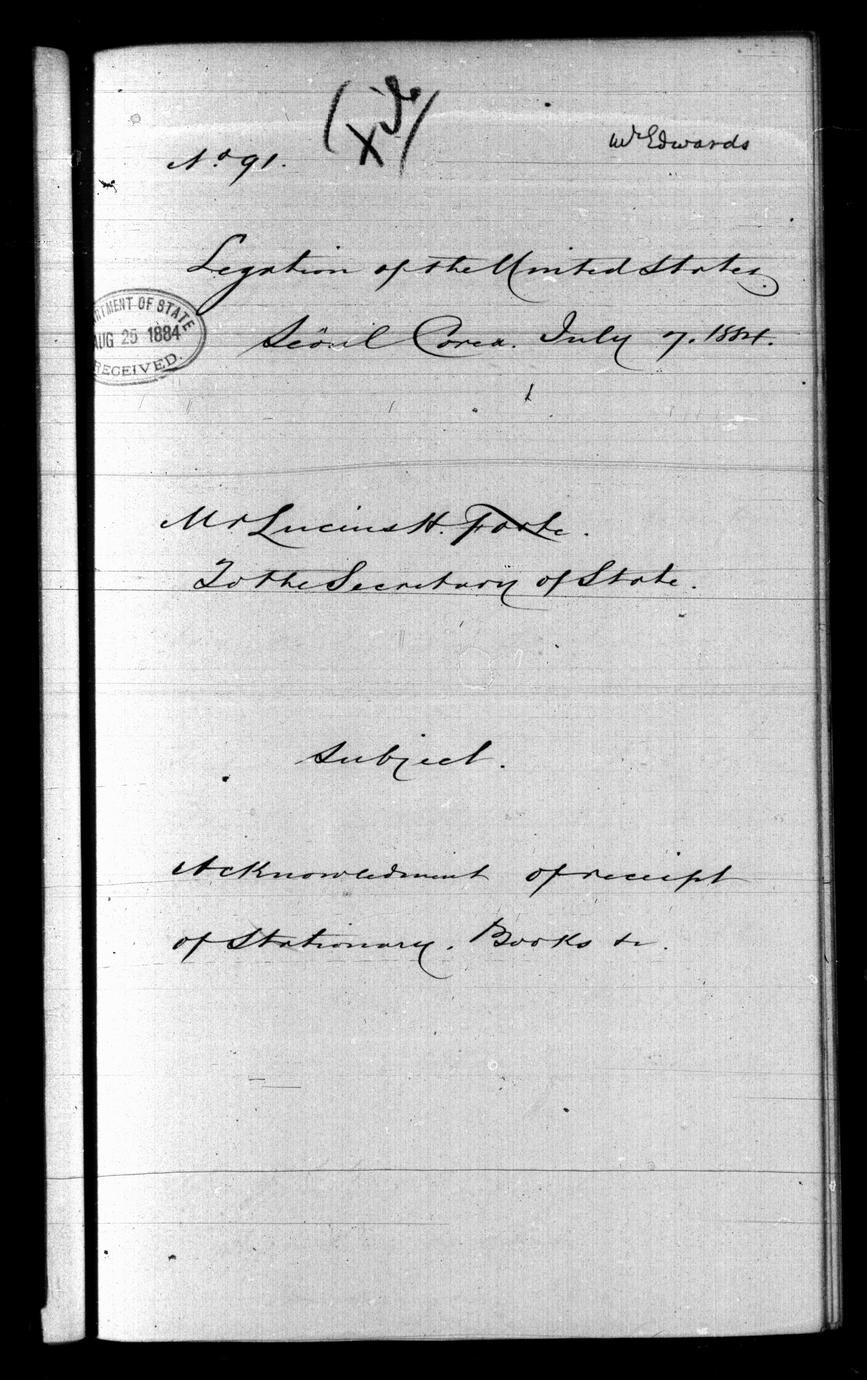 Mr Edwards
No 91.
Legation of the United States.
Seöul Corea. July 7. 1884.
RTMENT OF STATE
AUG 25 1884
RECEIVED.
Mr Lucius H. Foote.
To the Secretary of State.
Subject.
Acknowledment of receipt
of Stationary. Books &c.